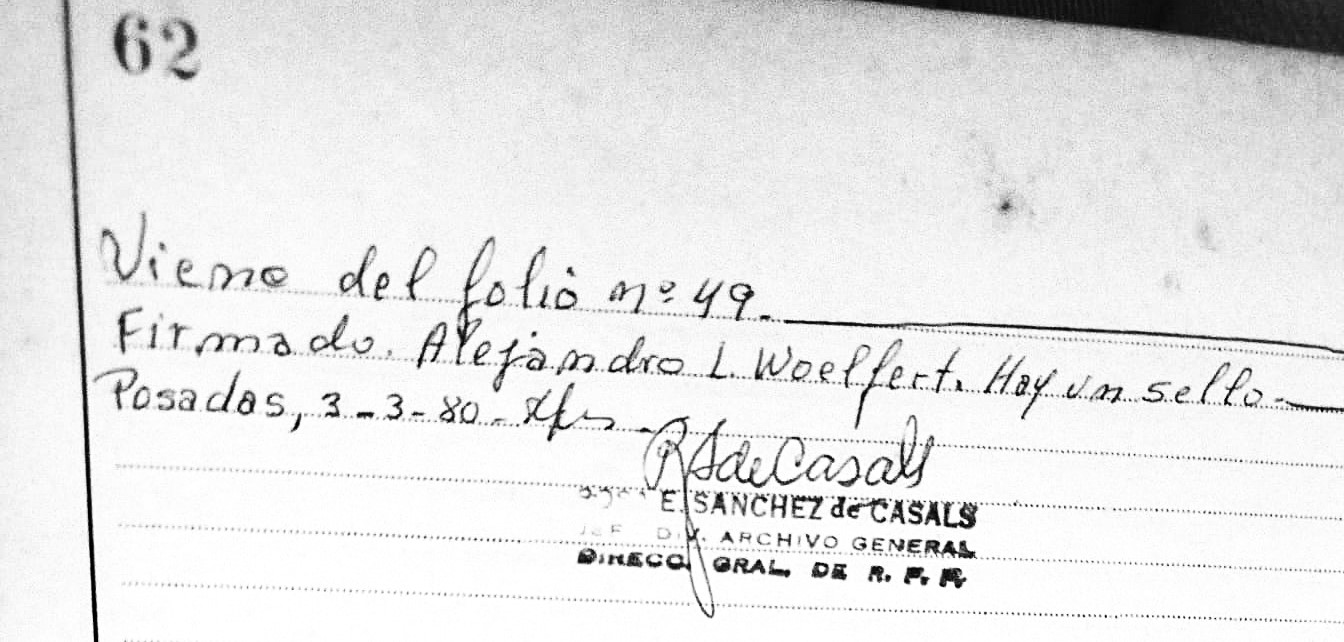 62
Viene del folio nº 49.
Firmado. Alejandro L. Woelfert. Hay un sello.
Posadas, 3-3-80.
RSdeCasals
E. SANCHEZ de CASALS
DIV. ARCHIVO GENERAL
DIRECC. GRAL. DE R. P. P.